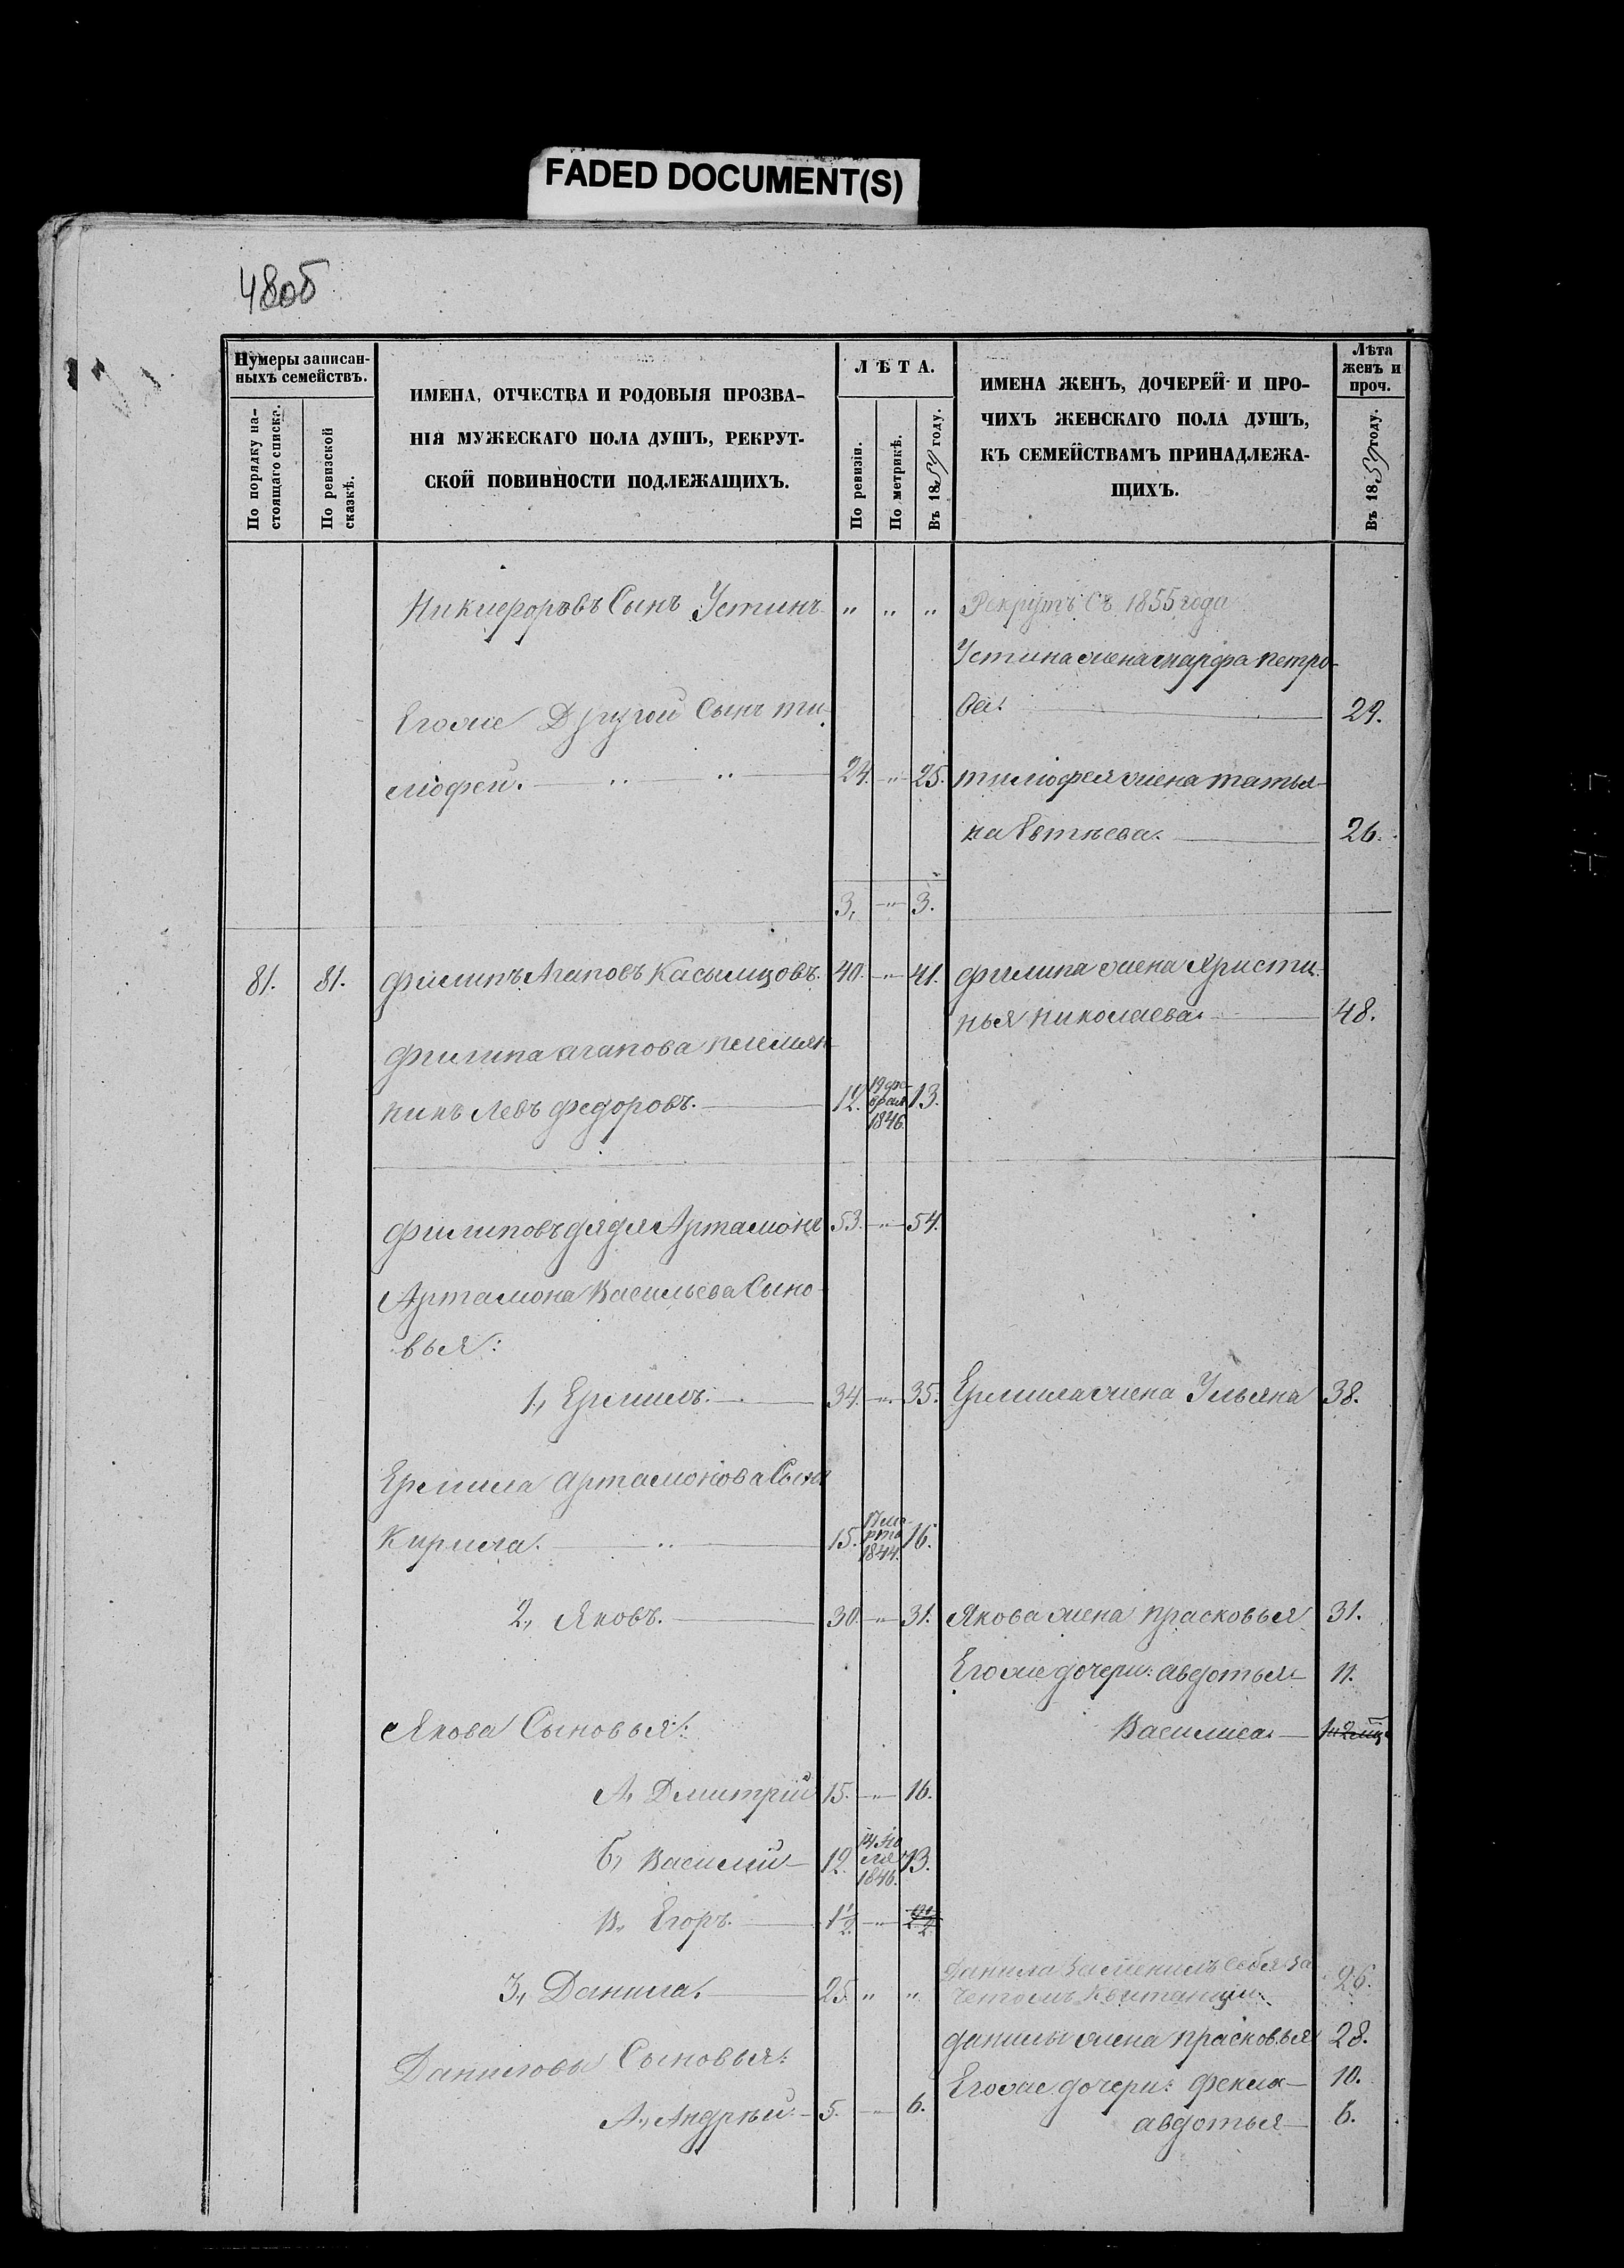 FADED DOCUMENT(S)
48об
Нумеры записан-
ныхъ семействъ.
По порядку на-
стоящаго списка.
По ревизской
сказкѣ.
ИМЕНА, ОТЧЕСТВА И РОДОВЫЯ ПРОЗВА-
НІЯ МУЖЕСКАГО ПОЛА ДУШЪ, РЕКРУТ-
СКОЙ ПОВИННОСТИ ПОДЛЕЖАЩИХЪ.
ЛѢТА.
По ревизіи.
По метрикѣ.
Въ 1859 году.
ИМЕНА ЖЕНЪ, ДОЧЕРЕЙ И ПРО-
ЧИХЪ ЖЕНСКАГО ПОЛА ДУШЪ,
КЪ СЕМЕЙСТВАМЪ ПРИНАДЛЕЖА-
ЩИХЪ.
Лѣта
женъ и
проч.
Въ 1859 году.
Никифоровъ Сынъ Устинъ " " " Рекрутъ Съ 1855 года
Устина жена марфа петро-
ва. 29.
Егоже Другой Сынъ ти-
мофей. 24. " 25. тимофея жена татья-
на 26.
3, " 3.
81. 81. Филипъ Агаповъ Касымцовъ. 40. " 41. филипа жена Христи-
нья николаева. 48.
Филипа агапова племян-
никъ Левъ федоровъ. 12. 19 фе-
враля
1846. 13.
Филиповъ дядя Артамонъ 53. " 54.
Артамона Васильева Сыно-
вья:
1, Ермилъ. 34. " 35. Ермила жена Ульяна 38.
Ермила Артамонова Сынъ
Кирила. 15. 17 ма-
рта
1844. 16.
2, Яковъ. 30. " 31. Якова жена прасковья 31.
Егоже дочери: авдотья 11.
Якова Сыновья:
Василиса.
А, Дмитрій 15. " 16.
Б, Василій 12. 1846. 13.
В, Егоръ. 1½ "
3, Данила. 25. " " Данила заменилъ себя за
четомъ квитанціи 26.
данилы жена прасковья 28.
Даниловы Сыновья:
Егоже дочери: фекла 10.
А, Андрѣй 5. " 6.
авдотья 6.